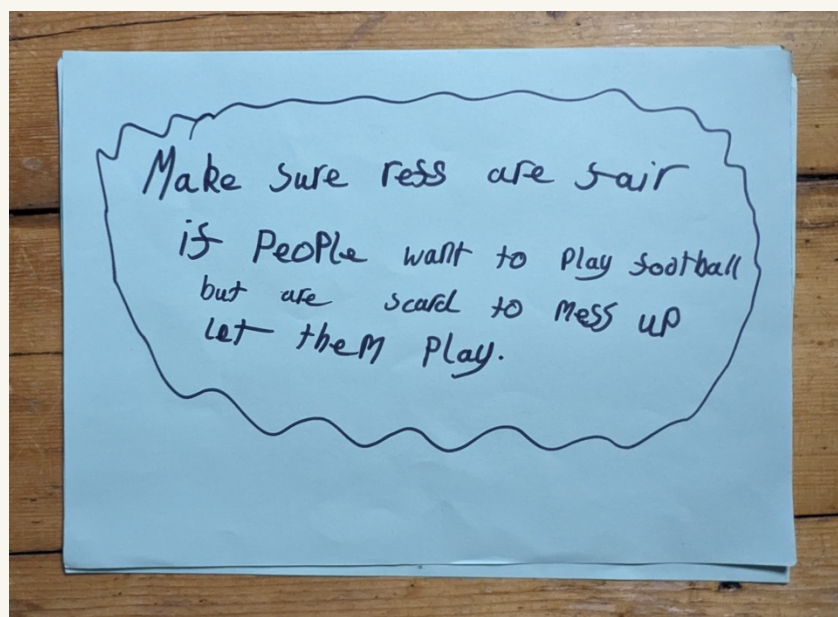 Make sure ress are fair
if PeoPle want to Play football
but are scard to Mess up
let theM Play.